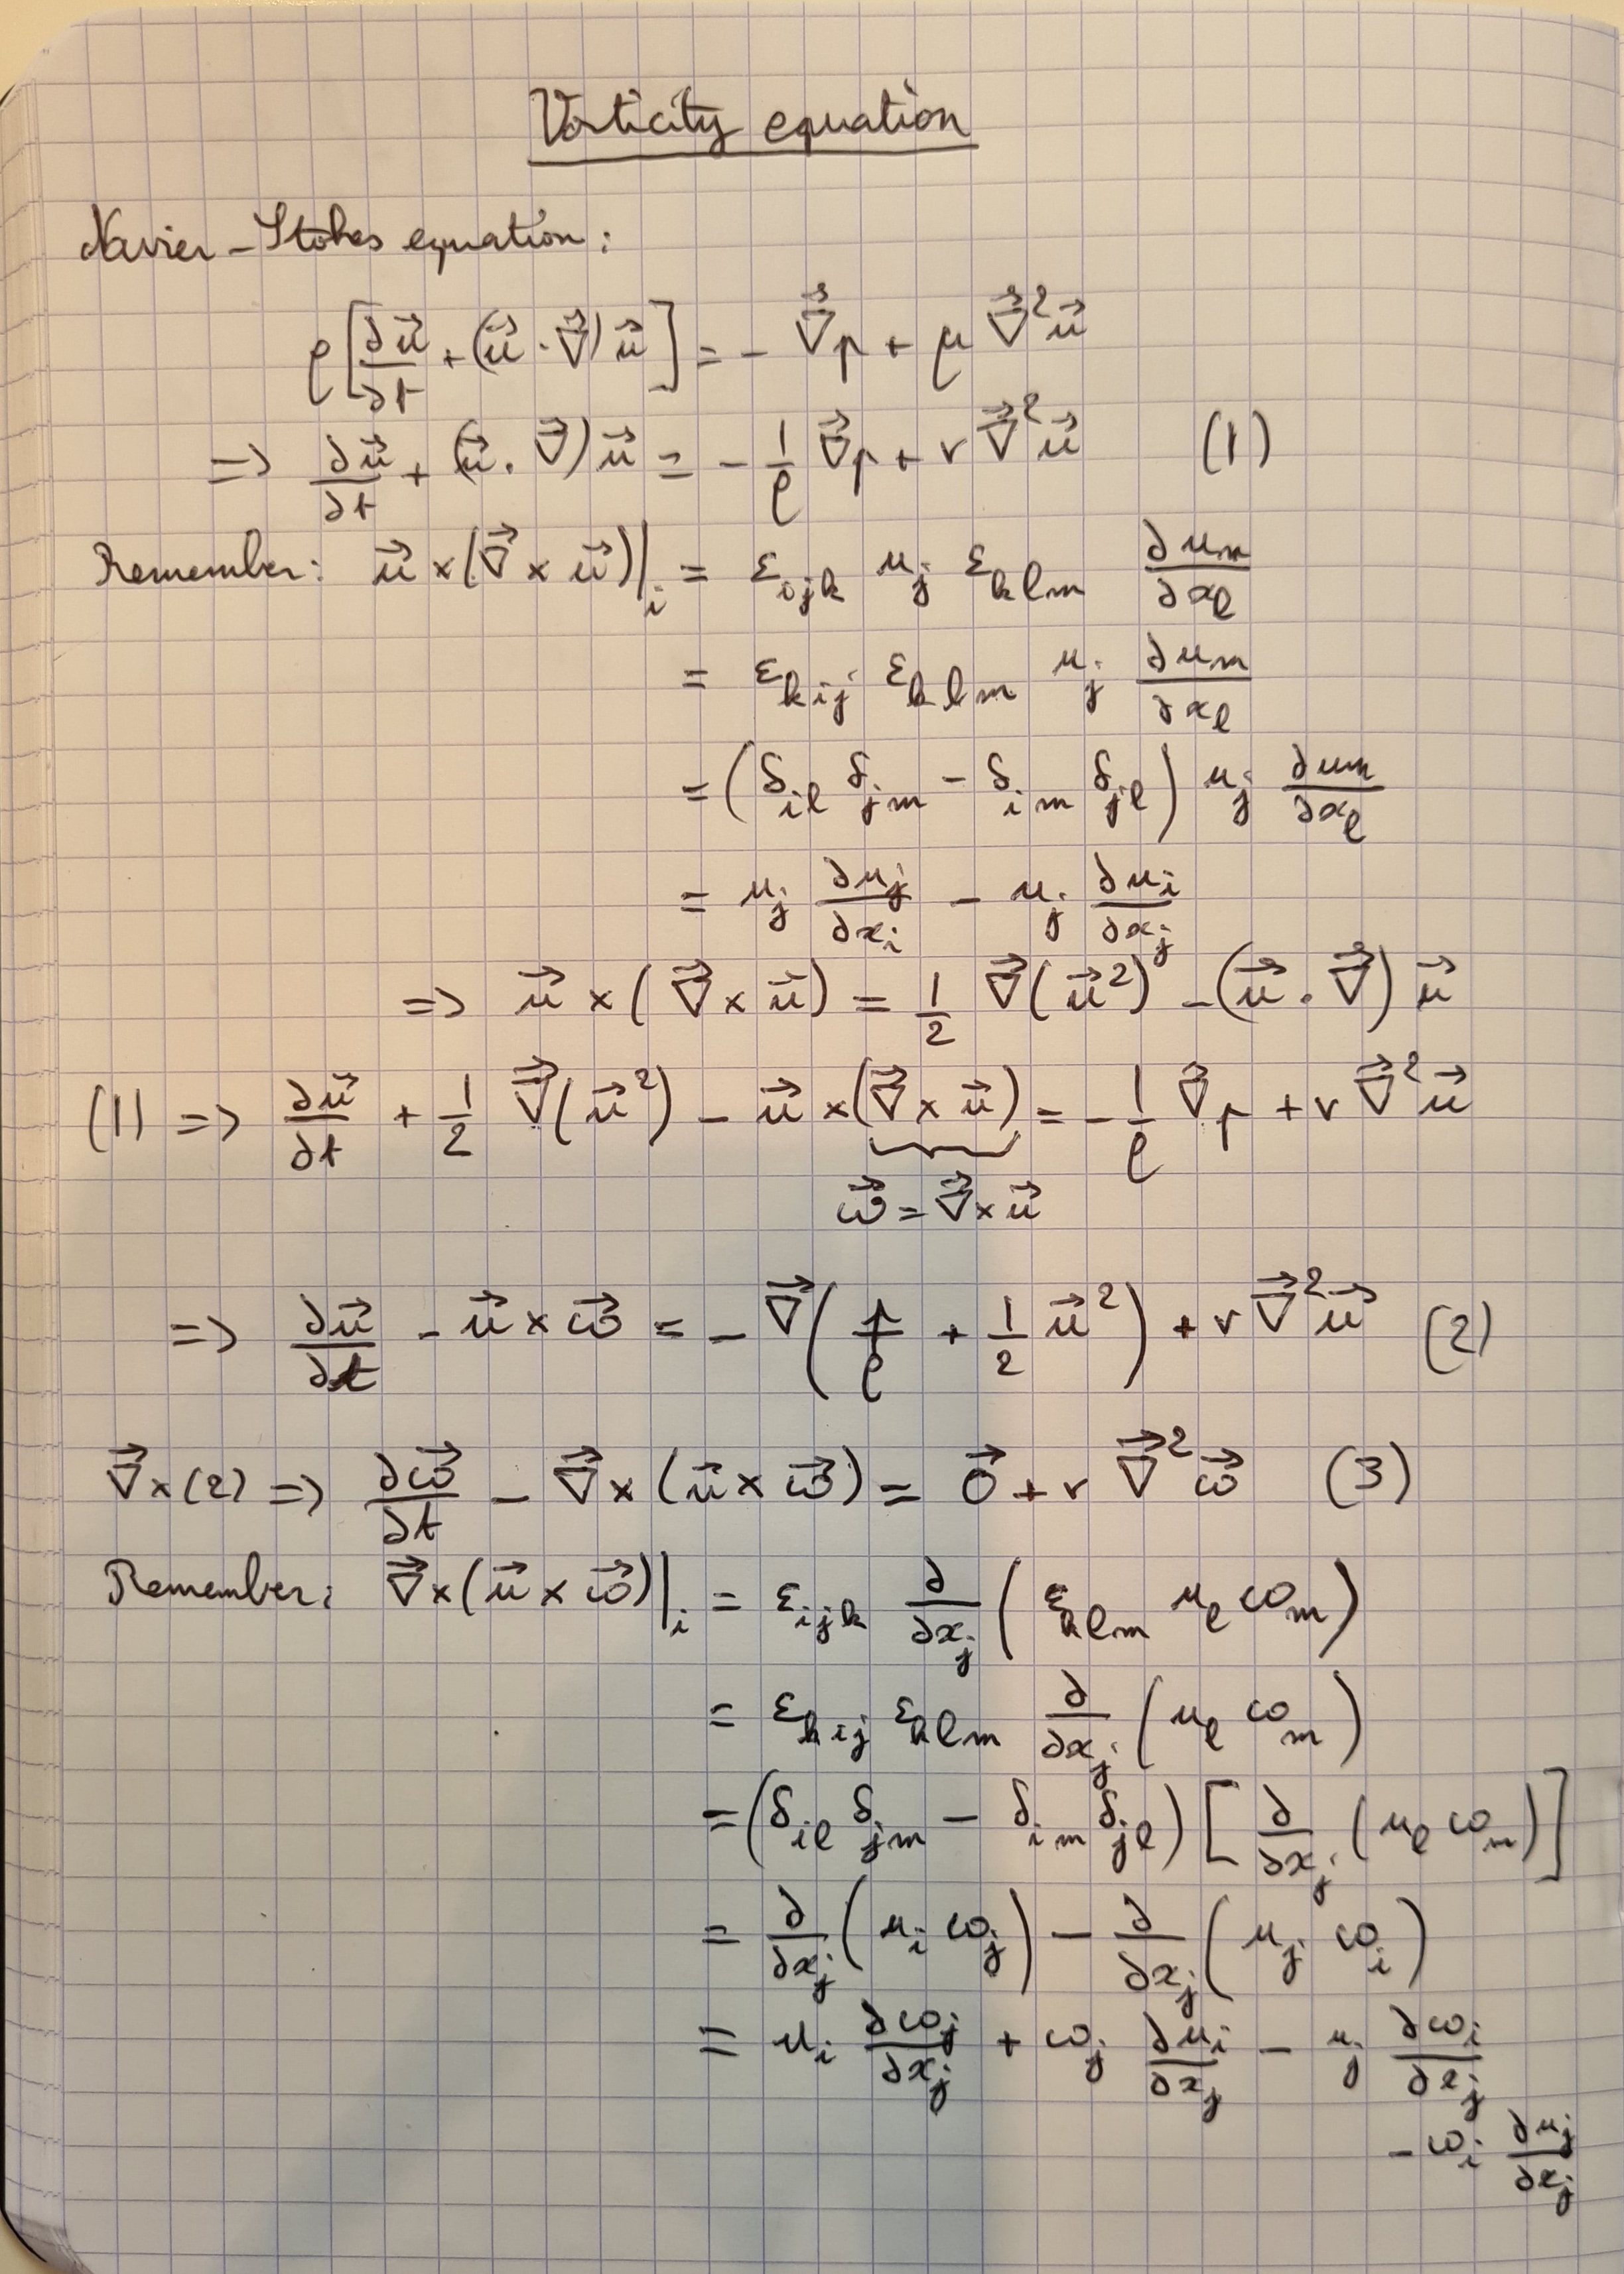 Vorticity equation
Navier-Stokes equation:
ρ[∂u⃗/∂t + (u⃗·∇⃗)u⃗] = - ∇⃗p + μ ∇⃗²u⃗
=> ∂u⃗/∂t + (u⃗·∇⃗)u⃗ = - 1/ρ ∇⃗p + ν ∇⃗²u⃗ (1)
Remember: u⃗ × (∇⃗ × u⃗)|_i = ε_ijk u_j ε_klm ∂u_m/∂x_l
= ε_kij ε_klm u_j ∂u_m/∂x_l
= (δ_il δ_jm - δ_im δ_jl) u_j ∂u_m/∂x_l
= u_j ∂u_j/∂x_i - u_j ∂u_i/∂x_j
=> u⃗ × (∇⃗ × u⃗) = 1/2 ∇⃗(u⃗²) - (u⃗·∇⃗)u⃗
(1) => ∂u⃗/∂t + 1/2 ∇⃗(u⃗²) - u⃗ × (∇⃗ × u⃗) = - 1/ρ ∇⃗p + ν ∇⃗²u⃗
ω⃗ = ∇⃗ × u⃗
=> ∂u⃗/∂t - u⃗ × ω⃗ = - ∇⃗(p/ρ + 1/2 u⃗²) + ν ∇⃗²u⃗ (2)
∇⃗×(2) => ∂ω⃗/∂t - ∇⃗ × (u⃗ × ω⃗) = 0⃗ + ν ∇⃗²ω⃗ (3)
Remember: ∇⃗ × (u⃗ × ω⃗)|_i = ε_ijk ∂/∂x_j (ε_klm u_l ω_m)
= ε_kij ε_klm ∂/∂x_j (u_l ω_m)
= (δ_il δ_jm - δ_im δ_jl) [∂/∂x_j (u_l ω_m)]
= ∂/∂x_j (u_i ω_j) - ∂/∂x_j (u_j ω_i)
= u_i ∂ω_j/∂x_j + ω_j ∂u_i/∂x_j - u_j ∂ω_i/∂x_j
- ω_i ∂u_j/∂x_j